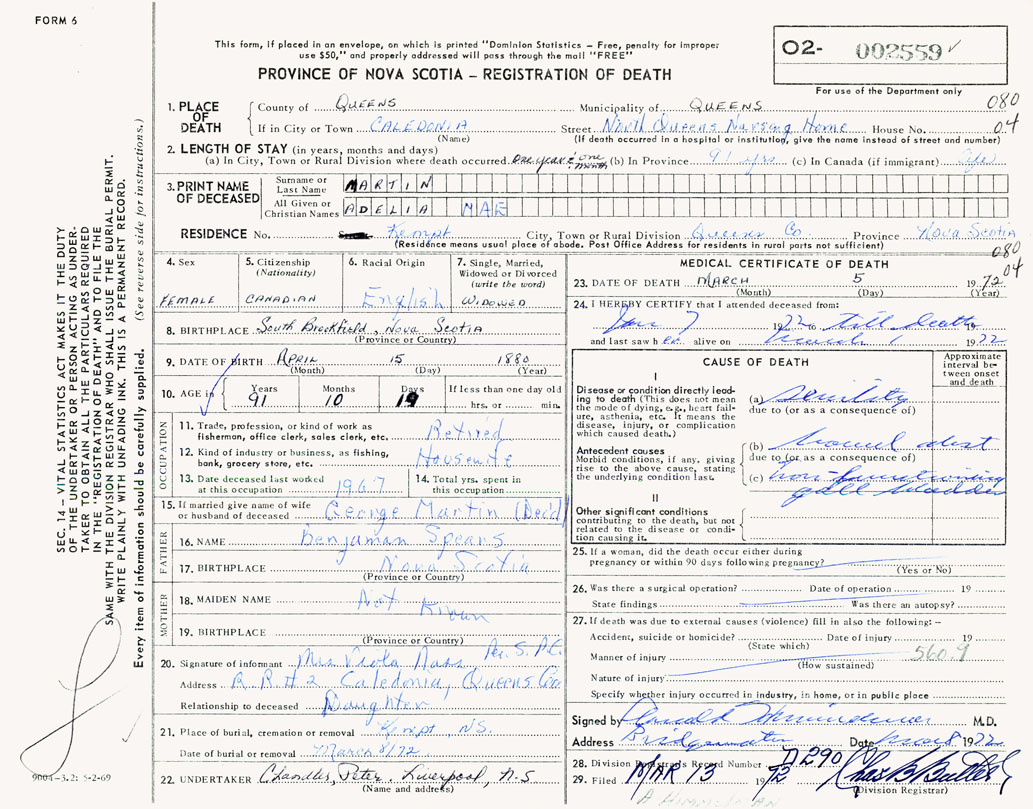 FORM 6
02- 002559
This form, if placed in an envelope, on which is printed "Dominion Statistics – Free, penalty for improper
use $50," and properly addressed will pass through the mail "FREE"
PROVINCE OF NOVA SCOTIA – REGISTRATION OF DEATH
For use of the Department only
080
04
1. PLACE OF DEATH
County of QUEENS Municipality of QUEENS
If in City or Town CALEDONIA Street North Queens Nursing Home House No.
(Name) (If death occurred in a hospital or institution, give the name instead of street and number)
2. LENGTH OF STAY (in years, months and days)
(a) In City, Town or Rural Division where death occurred one year & one month (b) In Province 91 yrs (c) In Canada (if immigrant) life
3. PRINT NAME OF DECEASED
Surname or Last Name MARTIN
All Given or Christian Names ADELIA MAE
RESIDENCE No. Kempt City, Town or Rural Division Queens Co Province Nova Scotia
(Residence means usual place of abode. Post Office Address for residents in rural parts not sufficient)
080
04
4. Sex FEMALE
5. Citizenship (Nationality) CANADIAN
6. Racial Origin English
7. Single, Married, Widowed or Divorced (write the word) WIDOWED
8. BIRTHPLACE South Brookfield, Nova Scotia
(Province or Country)
9. DATE OF BIRTH APRIL 15 1880
(Month) (Day) (Year)
10. AGE in Years 91 Months 10 Days 19 If less than one day old hrs. or min.
OCCUPATION
11. Trade, profession, or kind of work as fisherman, office clerk, sales clerk, etc. Retired
12. Kind of industry or business, as fishing, bank, grocery store, etc. Housewife
13. Date deceased last worked at this occupation 1967
14. Total yrs. spent in this occupation
15. If married give name of wife or husband of deceased George Martin (Dec'd)
FATHER
16. NAME Benjaman Spears
17. BIRTHPLACE Nova Scotia
(Province or Country)
MOTHER
18. MAIDEN NAME Not Known
19. BIRTHPLACE
(Province or Country)
20. Signature of informant Mrs Viola Nass Per. S. P.C.
Address R R # 2 Caledonia, Queens Co
Relationship to deceased Daughter
21. Place of burial, cremation or removal Kempt, NS.
Date of burial or removal March 8/72
22. UNDERTAKER Chandler, Peter, Liverpool, N.S
(Name and address)
MEDICAL CERTIFICATE OF DEATH
23. DATE OF DEATH MARCH 5 1972
(Month) (Day) (Year)
24. I HEREBY CERTIFY that I attended deceased from:
Jan 7 1972 to till death 19
and last saw her alive on March 1 1972
CAUSE OF DEATH
Approximate interval between onset and death
I
Disease or condition directly leading to death (This does not mean the mode of dying, e.g., heart failure, asthenia, etc. It means the disease, injury, or complication which caused death.)
(a) senility
due to (or as a consequence of)
Antecedent causes
Morbid conditions, if any, giving rise to the above cause, stating the underlying condition last.
(b) bowel obst
due to (or as a consequence of)
(c) non functioning gall bladder
II
Other significant conditions contributing to the death, but not related to the disease or condition causing it.
25. If a woman, did the death occur either during pregnancy or within 90 days following pregnancy?
(Yes or No)
26. Was there a surgical operation? Date of operation 19
State findings Was there an autopsy?
27. If death was due to external causes (violence) fill in also the following: –
Accident, suicide or homicide? Date of injury 19
(State which)
Manner of injury 560.9
(How sustained)
Nature of injury
Specify whether injury occurred in industry, in home, or in public place
Signed by M.D.
Address Bridgewater Date Mar 8 1972
28. Division Registrar's Record Number D290
29. Filed MAR 13 1972 Chas B Butler
(Division Registrar)
SEC. 14 – VITAL STATISTICS ACT MAKES IT THE DUTY
OF THE UNDERTAKER OR PERSON ACTING AS UNDERTAKER
TO OBTAIN ALL THE PARTICULARS REQUIRED
IN THE "REGISTRATION OF DEATH" AND TO FILE THE
SAME WITH THE DIVISION REGISTRAR WHO SHALL ISSUE THE BURIAL PERMIT.
WRITE PLAINLY WITH UNFADING INK. THIS IS A PERMANENT RECORD.
Every item of information should be carefully supplied. (See reverse side for instructions.)
9004–3.2: 5-2-69